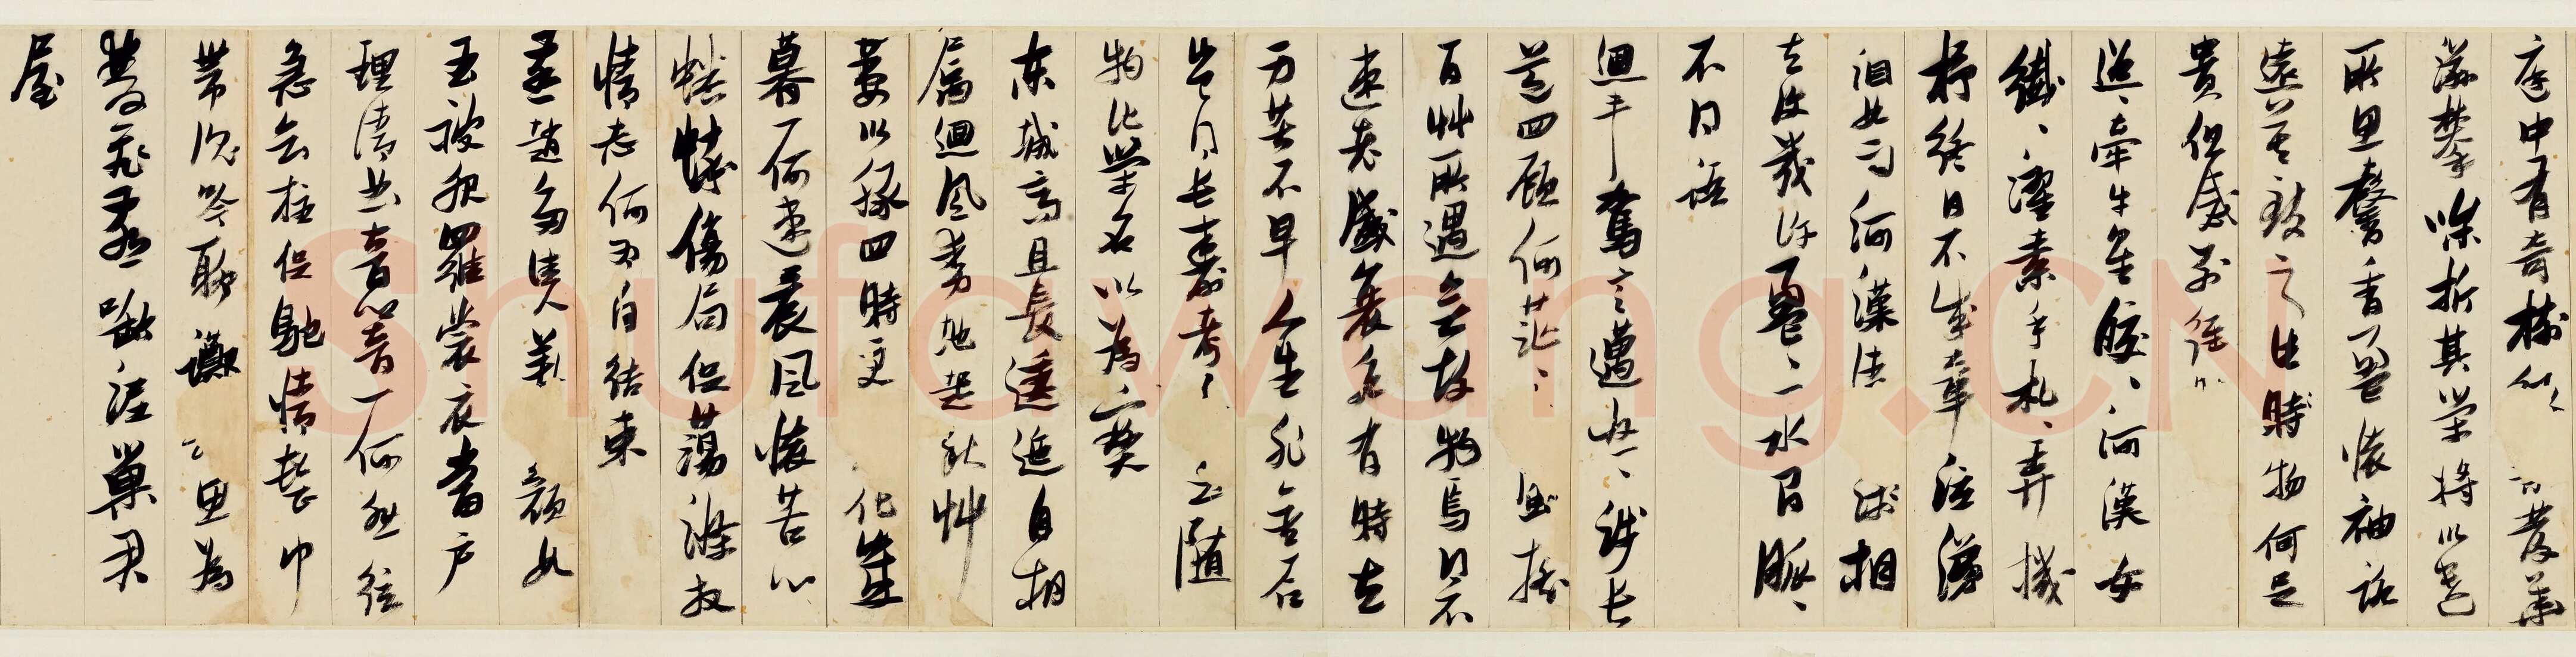 庭中有奇樹綠發華
滋攀條折其榮將以遺
所思馨香盈懷袖路
遠莫致之此時物何足
貴但感別經
迢〻牽牛星皎〻河漢女
纖〻濯素手札〻弄機
杼終日不成章泣涕
泪如雨河漢清淺相
去復幾許盈〻一水間脈〻
不得語
迴車駕言邁悠〻涉長
道四顧何茫〻風搖
百草所遇無故物焉得不
速老盛衰各有時立
身苦不早人生非金石
豈得長壽考忽隨
物化榮名以為寶
東城高且長逶迤自相
屬迴風動地起秋草
萋以綠四時更化歲
暮一何速晨風懷苦心
蟋蟀傷局促蕩滌放
情志何為自結束
燕趙多佳人美顏如
玉被服羅裳衣當戶
理清曲音響一何悲絃
急知柱促馳情整中
帶沉吟聊躑思為
雙飛燕啣泥巢君
屋
Shufawang.CN